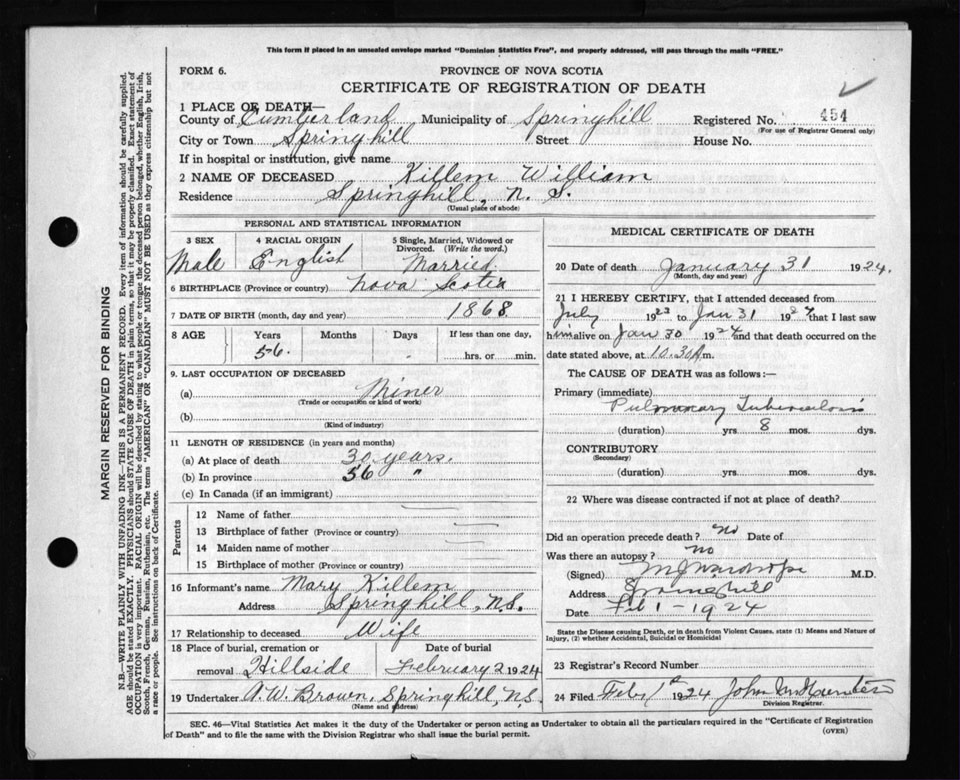 This form if placed in an unsealed envelope marked "Dominion Statistics Free", and properly addressed, will pass through the mails "FREE."
FORM 6.
PROVINCE OF NOVA SCOTIA
CERTIFICATE OF REGISTRATION OF DEATH
1 PLACE OF DEATH—
County of Cumberland Municipality of Springhill Registered No. 454
(For use of Registrar General only)
City or Town Springhill Street House No.
If in hospital or institution, give name
2 NAME OF DECEASED Killem William
Residence Springhill, N. S.
(Usual place of abode)
PERSONAL AND STATISTICAL INFORMATION
3 SEX 4 RACIAL ORIGIN 5 Single, Married, Widowed or Divorced. (Write the word.)
Male English Married
6 BIRTHPLACE (Province or country) Nova Scotia
7 DATE OF BIRTH (month, day and year) 1868
8 AGE Years Months Days If less than one day,
56. hrs. or min.
9. LAST OCCUPATION OF DECEASED
(a) Miner
(Trade or occupation or kind of work)
(b)
(Kind of industry)
11 LENGTH OF RESIDENCE (in years and months)
(a) At place of death 30 years.
(b) In province 56 "
(c) In Canada (if an immigrant)
Parents
12 Name of father
13 Birthplace of father (Province or country)
14 Maiden name of mother
15 Birthplace of mother (Province or country)
16 Informant's name Mary Killem
Address Springhill, N.S.
17 Relationship to deceased Wife
18 Place of burial, cremation or Date of burial
removal Hillside February 2 1924
19 Undertaker A. W. Brown, Springhill, N.S.
(Name and address)
MEDICAL CERTIFICATE OF DEATH
20 Date of death January 31 1924.
(Month, day and year)
21 I HEREBY CERTIFY, that I attended deceased from
July 1923 to Jan 31 1924 that I last saw
him alive on Jan 30 1924 and that death occurred on the
date stated above, at 10.30 A m.
The CAUSE OF DEATH was as follows:—
Primary (immediate)
Pulmonary Tuberculosis
(duration) yrs 8 mos. dys.
CONTRIBUTORY
(Secondary)
(duration) yrs. mos. dys.
22 Where was disease contracted if not at place of death?
Did an operation precede death? No Date of
Was there an autopsy? no
(Signed) M.D.
Address Springhill
Date Feb 1 - 1924
State the Disease causing Death, or in death from Violent Causes, state (1) Means and Nature of
Injury, (2) whether Accidental, Suicidal or Homicidal
23 Registrar's Record Number
24 Filed Feby 1st 1924 John
Division Registrar.
SEC. 46—Vital Statistics Act makes it the duty of the Undertaker or person acting as Undertaker to obtain all the particulars required in the "Certificate of Registration
of Death" and to file the same with the Division Registrar who shall issue the burial permit.
(OVER)
MARGIN RESERVED FOR BINDING
N.B.—WRITE PLAINLY WITH UNFADING INK—THIS IS A PERMANENT RECORD. Every item of information should be carefully supplied.
AGE should be stated EXACTLY. PHYSICIANS should STATE CAUSE OF DEATH in plain terms, so that it may be properly classified. Exact statement of
OCCUPATION is very important. RACIAL ORIGIN will be described by stating to what people or tongue the deceased person belonged, whether English, Irish,
Scotch, French, German, Russian, Ruthenian, etc. The terms "AMERICAN" or "CANADIAN" MUST NOT BE USED as they express citizenship but not
a race or people. See instructions on back of Certificate.